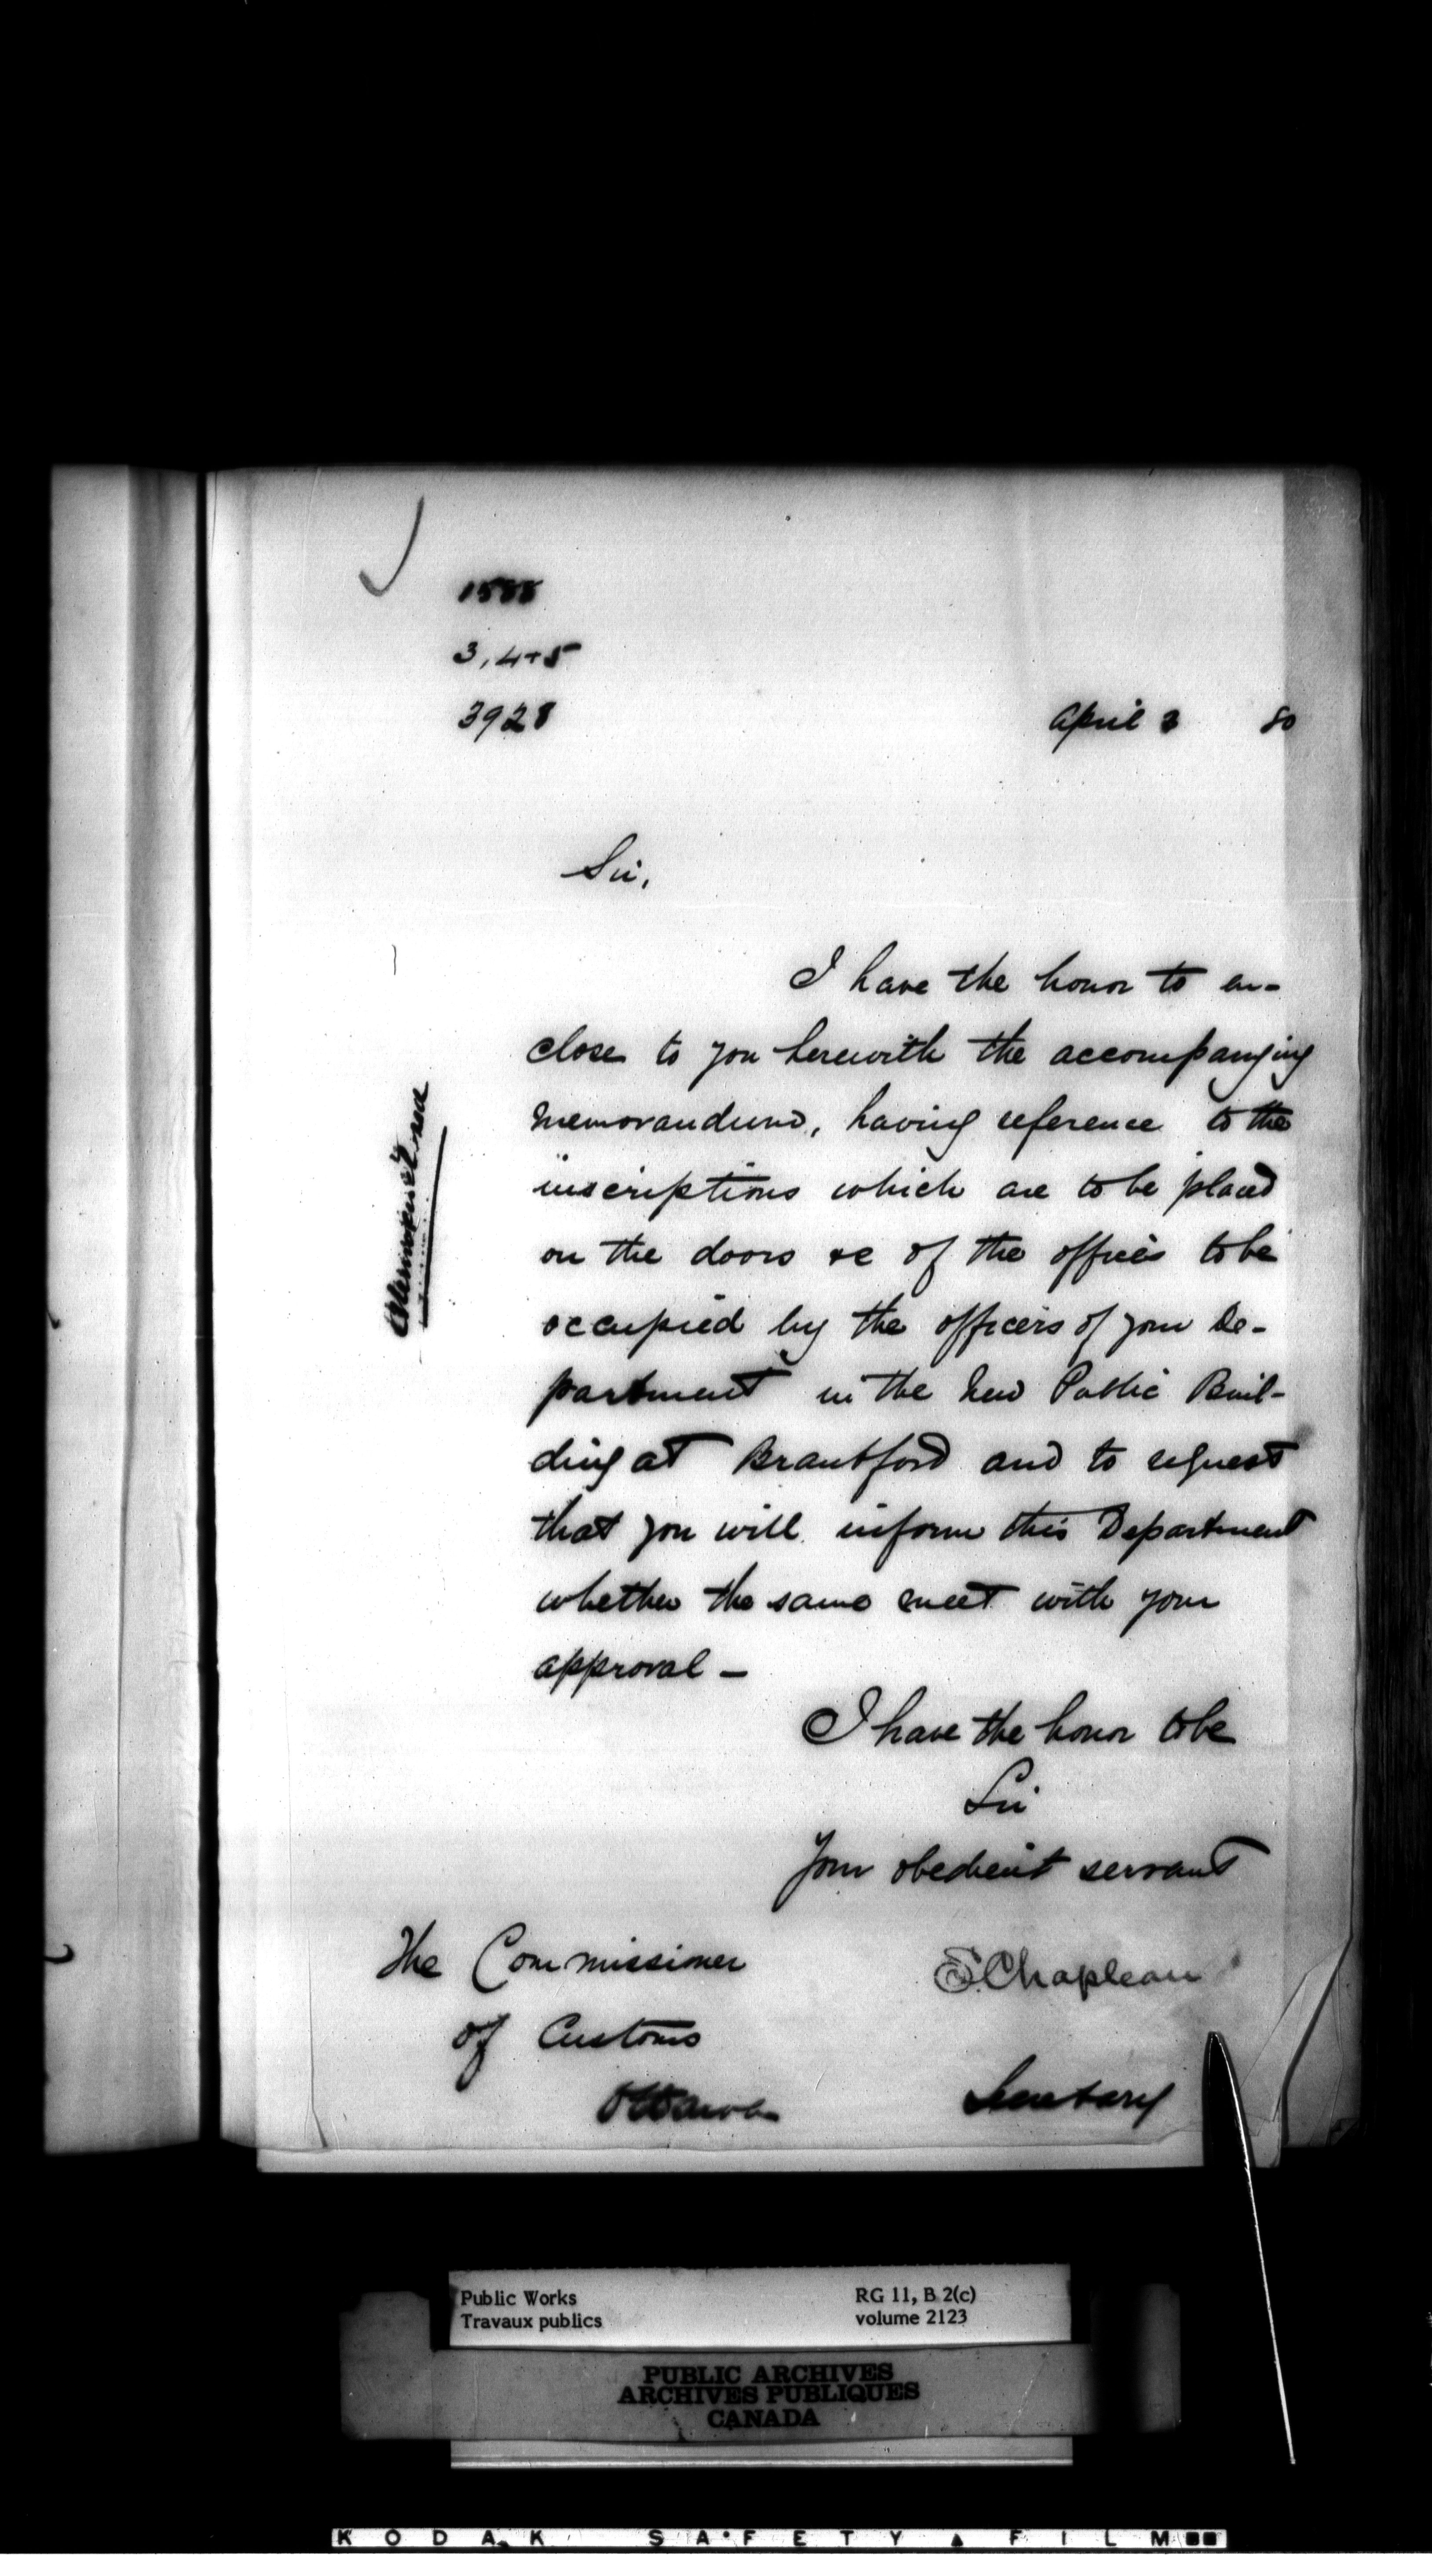 1588
3,4+5
3928
April 3 80
Sir,
I have the honor to en-
close to you herewith the accompanying
memorandum, having reference to the
inscriptions which are to be placed
on the doors &c of the offices to be
occupied by the officers of your De-
partment in the new Public Buil-
ding at Brantford and to request
that you will inform this Department
whether the same meet with your
approval –
I have the honor to be
Sir
Your obedient servant
The Commissioner
of Customs
Ottawa
S Chapleau
Secretary
Public Works
Travaux publics
RG 11, B 2(c)
volume 2123
PUBLIC ARCHIVES
ARCHIVES PUBLIQUES
CANADA
KODAK SAFETY FILM